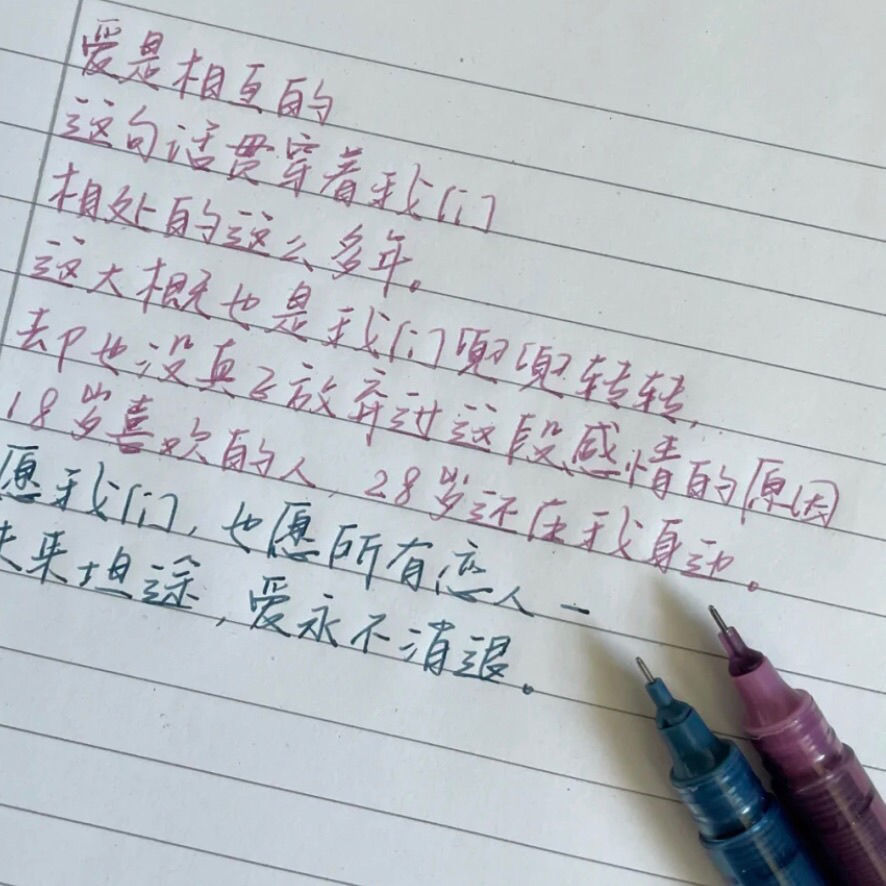 爱是相互的
这句话贯穿着我们
相处的这么多年。
这大概也是我们兜兜转转,
却也没真正放弃过这段感情的原因
18岁喜欢的人,28岁还在我身边。
愿我们,也愿所有恋人一
未来坦途,爱永不消退。